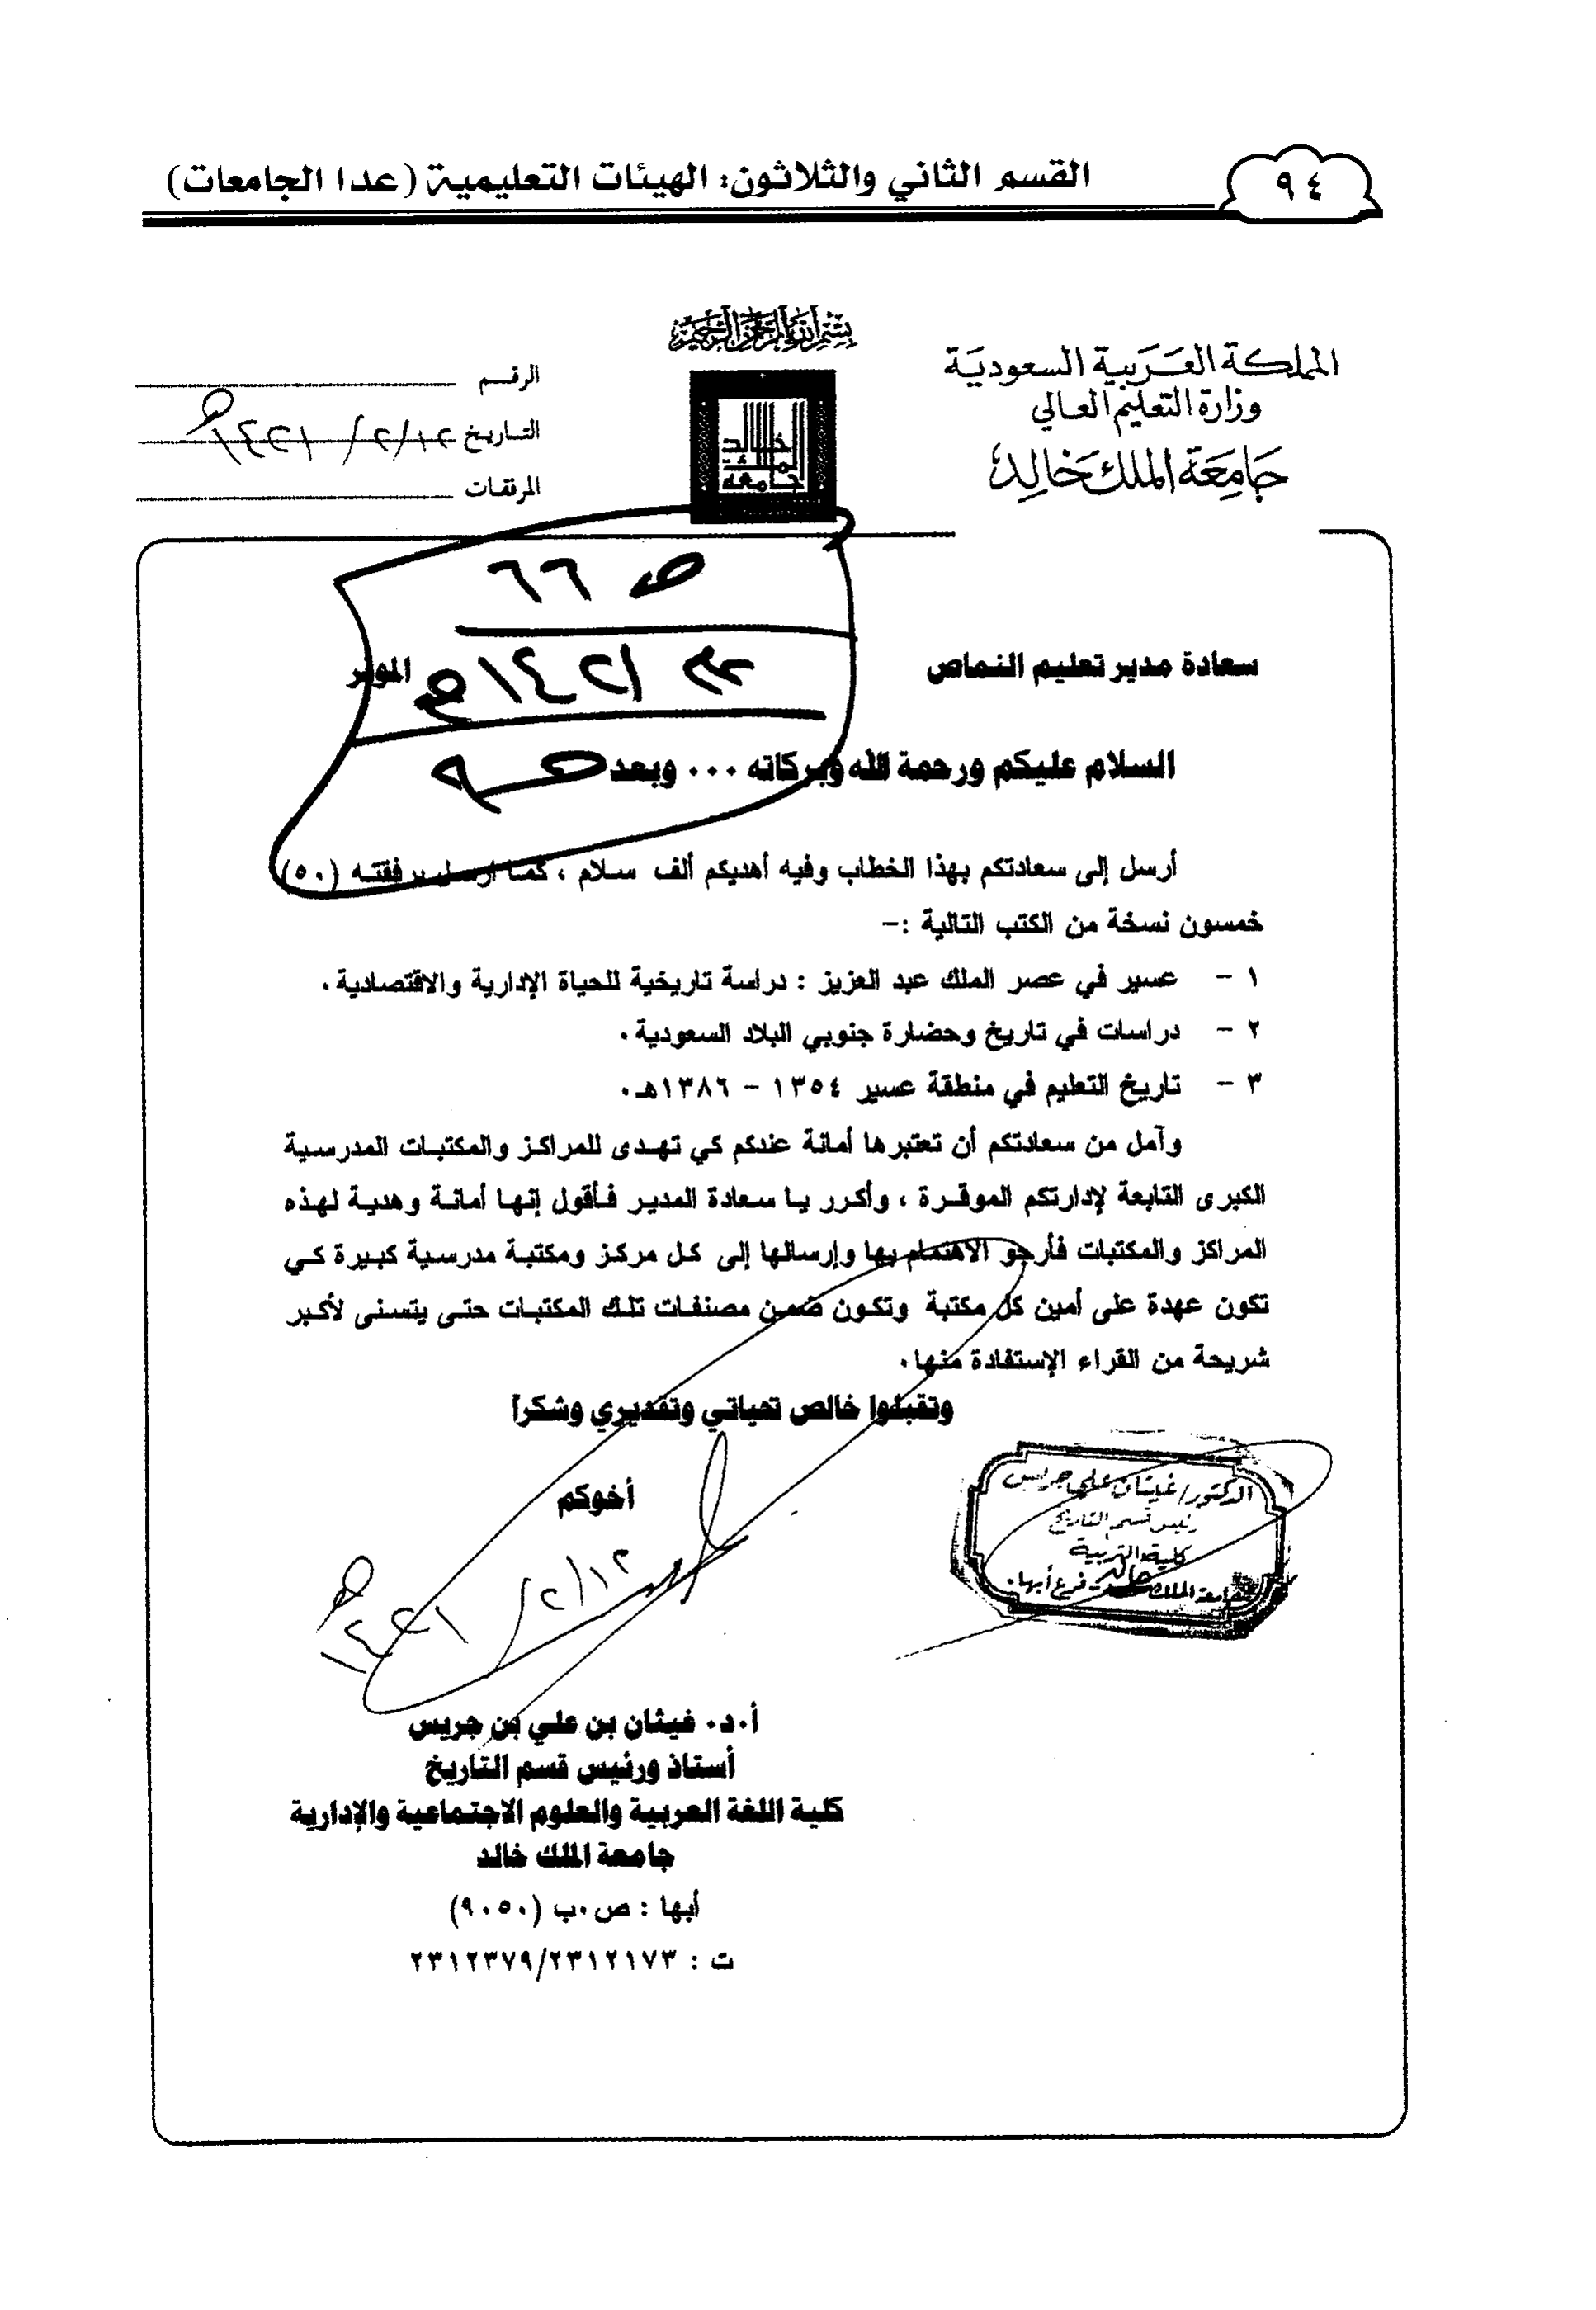 ٩٤
القسم الثاني والثلاثون: الهيئات التعليمية (عدا الجامعات)
بسم الله الرحمن الرحيم
المملكة العربية السعودية
وزارة التعليم العالي
جامعة الملك خالد
جامعة الملك خالد
الرقم
التاريخ ١٢/٢/١٤٢١هـ
المرفقات
ص ٦٦
١٤٢١هـ
سعادة مدير تعليم النماص الموقر
السلام عليكم ورحمة الله وبركاته ... وبعد
أرسل إلى سعادتكم بهذا الخطاب وفيه أهديكم ألف سلام ، كما أرسل برفقته (٥٠)
خمسون نسخة من الكتب التالية :-
١ - عسير في عصر الملك عبد العزيز : دراسة تاريخية للحياة الإدارية والاقتصادية .
٢ - دراسات في تاريخ وحضارة جنوبي البلاد السعودية .
٣ - تاريخ التعليم في منطقة عسير ١٣٥٤ - ١٣٨٦هـ .
وآمل من سعادتكم أن تعتبرها أمانة عندكم كي تهدى للمراكز والمكتبات المدرسية
الكبرى التابعة لإدارتكم الموقرة ، وأكرر يا سعادة المدير فأقول إنها أمانة وهدية لهذه
المراكز والمكتبات فأرجو الاهتمام بها وإرسالها إلى كل مركز ومكتبة مدرسية كبيرة كي
تكون عهدة على أمين كل مكتبة وتكون ضمن مصنفات تلك المكتبات حتى يتسنى لأكبر
شريحة من القراء الإستفادة منها .
وتقبلوا خالص تحياتي وتقديري وشكراً
أخوكم
١٢/٢/١٤٢١هـ
الدكتور/ غيثان علي جريس
رئيس قسم التاريخ
كلية التربية
جامعة الملك خالد فرع أبها
أ.د. غيثان بن علي بن جريس
أستاذ ورئيس قسم التاريخ
كلية اللغة العربية والعلوم الاجتماعية والإدارية
جامعة الملك خالد
أبها : ص.ب (٩٠٥٠)
ت : ٢٣١٢١٧٣/٢٣١٢٣٧٩